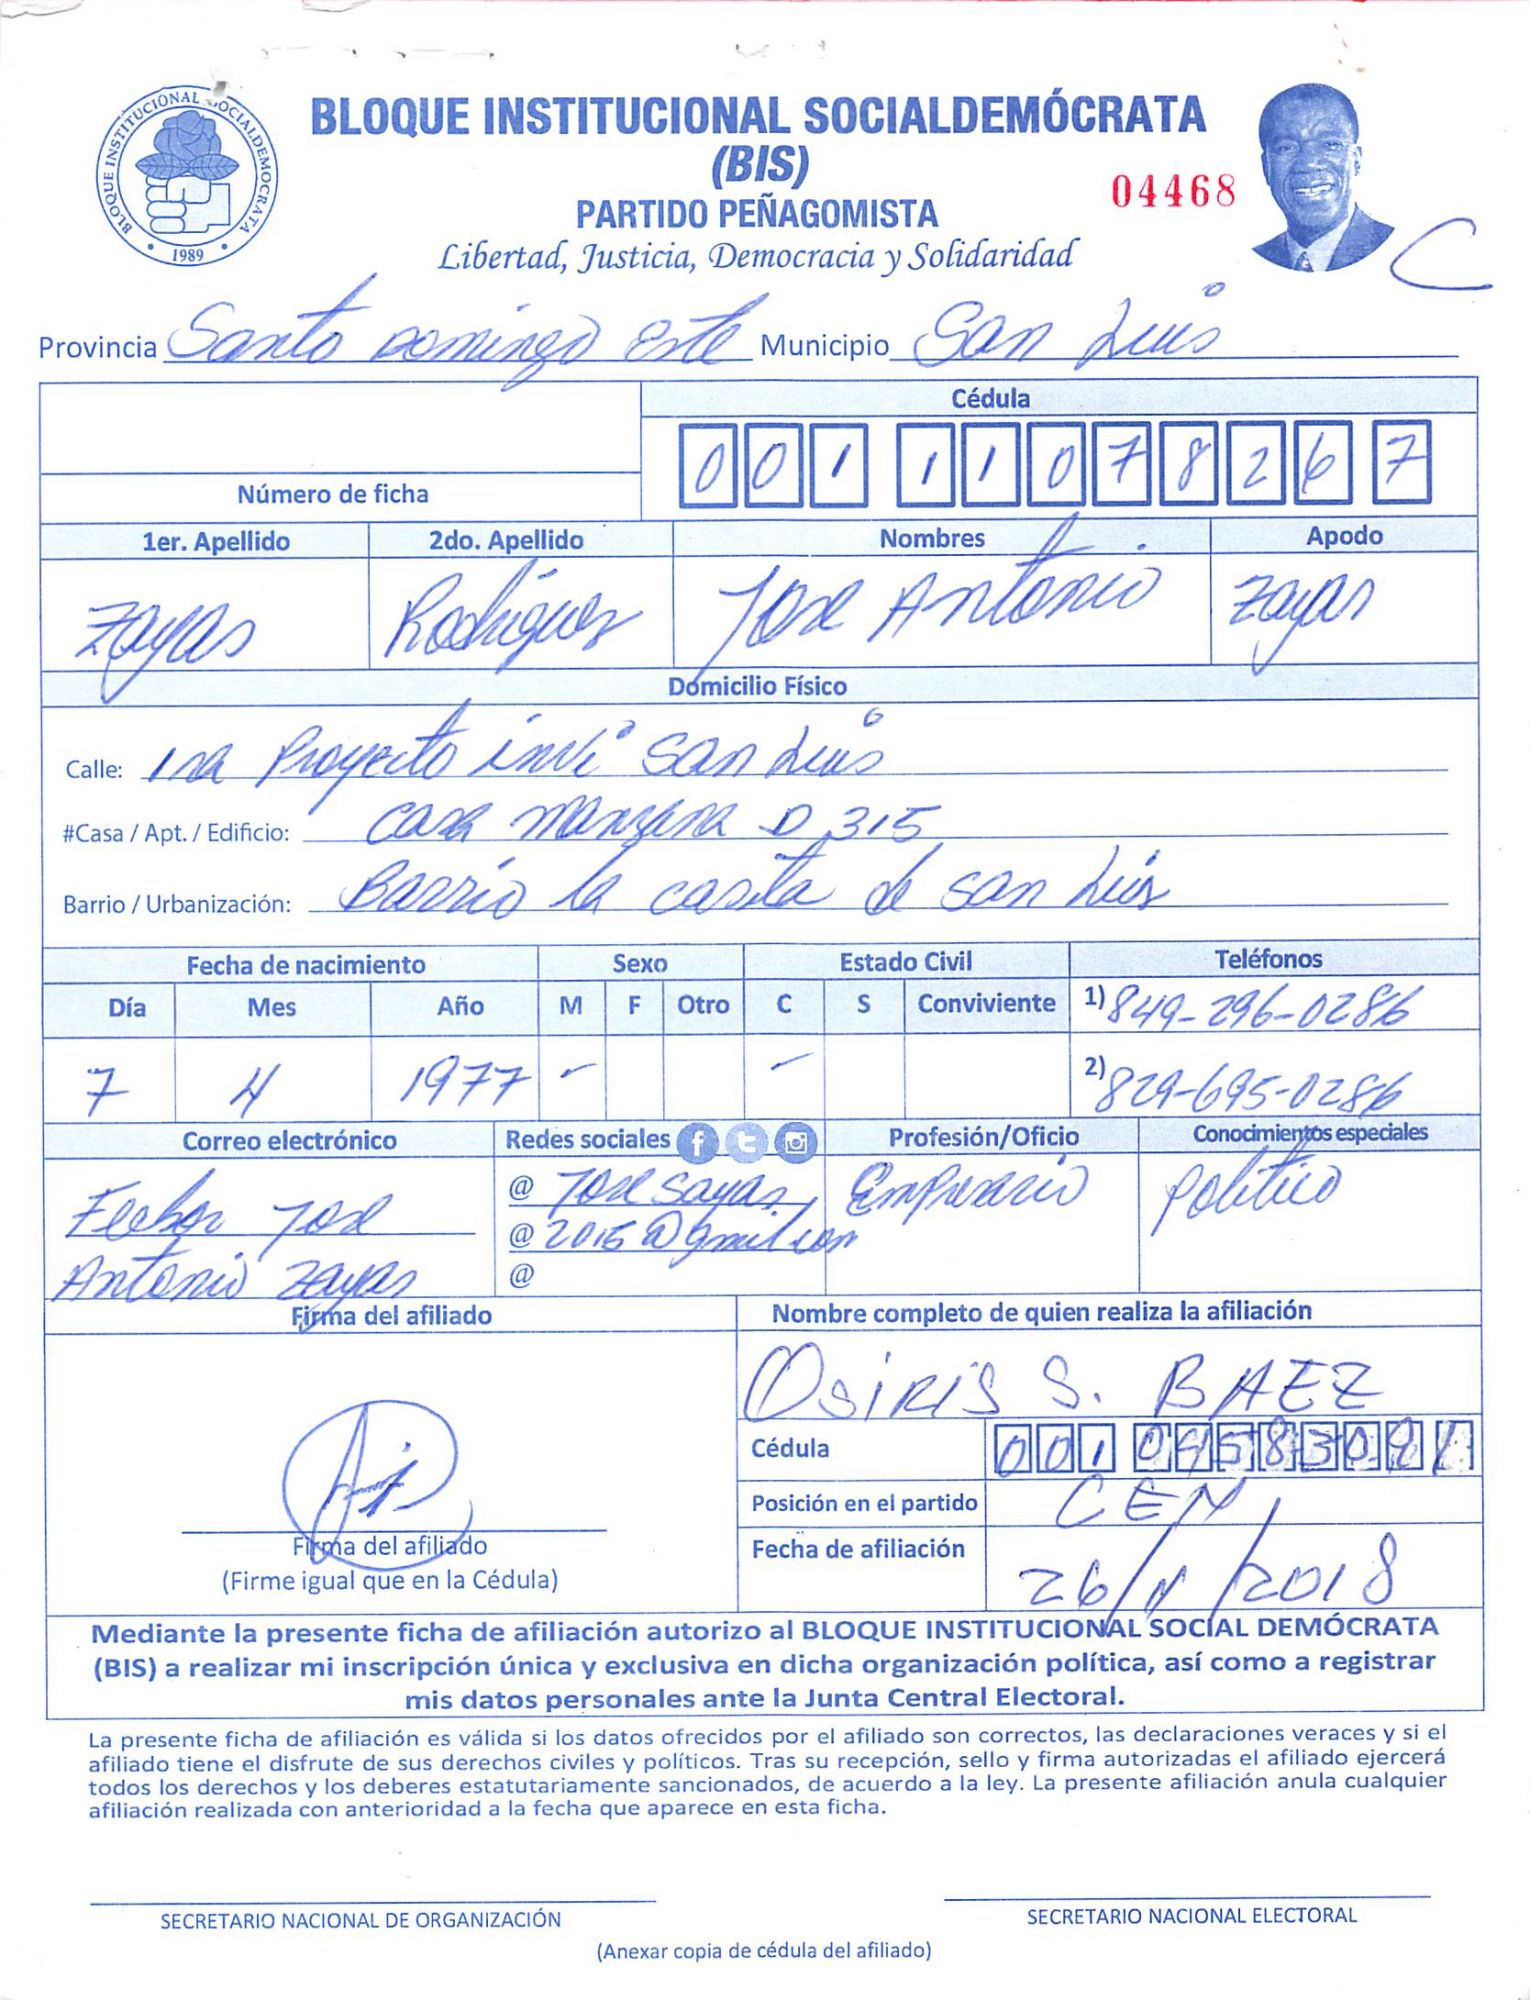 BLOQUE INSTITUCIONAL SOCIALDEMOCRATA
1989
BLOQUE INSTITUCIONAL SOCIALDEMÓCRATA
(BIS)
04468
PARTIDO PEÑAGOMISTA
Libertad, Justicia, Democracia y Solidaridad
Provincia Santo Domingo Este Municipio San Luis
Cédula
001 1107826 7
Número de ficha
1er. Apellido 2do. Apellido Nombres Apodo
Zayas Rodriguez Jose Antonio Zayas
Domicilio Físico
Calle: 1ra Proyecto invi San Luis
#Casa / Apt. / Edificio: Casa manzana D 315
Barrio / Urbanización: Barrio la casita de San Luis
Fecha de nacimiento Sexo Estado Civil Teléfonos
Día Mes Año M F Otro C S Conviviente 1) 849-296-0286
7 4 1977 - - 2) 829-695-0286
Correo electrónico Redes sociales f t Profesión/Oficio Conocimientos especiales
Jose @ Jose Sayas Empresario Politico
@ 2015@gmil.com
Antonio Zayas @
Firma del afiliado Nombre completo de quien realiza la afiliación
OSIRIS S. BAEZ
Cédula 001
Posición en el partido CEN
Firma del afiliado Fecha de afiliación 26/11/2018
(Firme igual que en la Cédula)
Mediante la presente ficha de afiliación autorizo al BLOQUE INSTITUCIONAL SOCIAL DEMÓCRATA
(BIS) a realizar mi inscripción única y exclusiva en dicha organización política, así como a registrar
mis datos personales ante la Junta Central Electoral.
La presente ficha de afiliación es válida si los datos ofrecidos por el afiliado son correctos, las declaraciones veraces y si el
afiliado tiene el disfrute de sus derechos civiles y políticos. Tras su recepción, sello y firma autorizadas el afiliado ejercerá
todos los derechos y los deberes estatutariamente sancionados, de acuerdo a la ley. La presente afiliación anula cualquier
afiliación realizada con anterioridad a la fecha que aparece en esta ficha.
SECRETARIO NACIONAL DE ORGANIZACIÓN SECRETARIO NACIONAL ELECTORAL
(Anexar copia de cédula del afiliado)